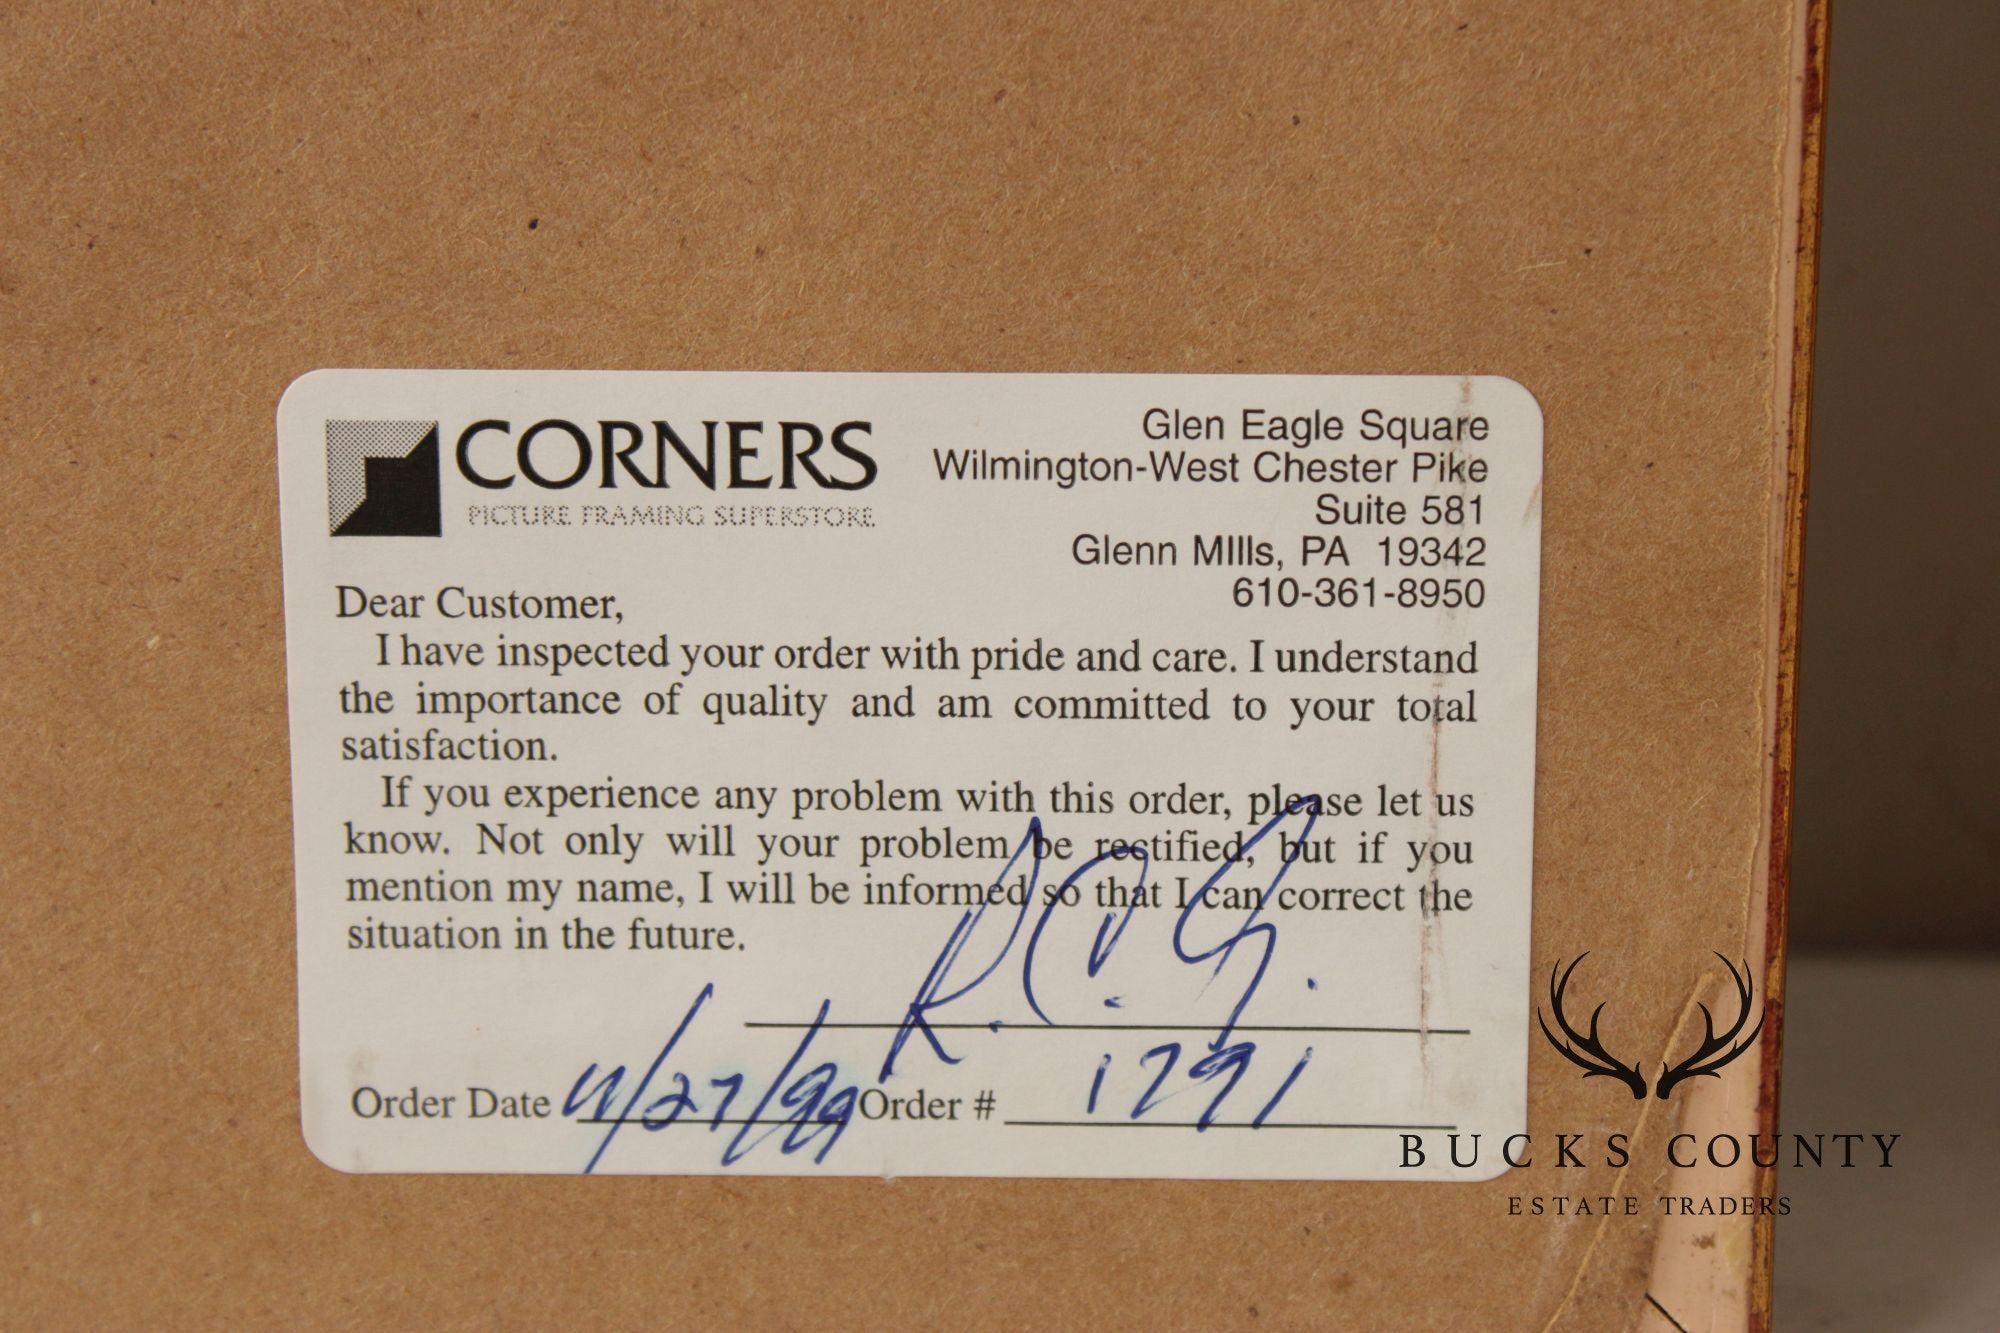 CORNERS
PICTURE FRAMING SUPERSTORE
Glen Eagle Square
Wilmington-West Chester Pike
Suite 581
Glenn MIlls, PA 19342
610-361-8950
Dear Customer,
I have inspected your order with pride and care. I understand
the importance of quality and am committed to your total
satisfaction.
If you experience any problem with this order, please let us
know. Not only will your problem be rectified, but if you
mention my name, I will be informed so that I can correct the
situation in the future.
Order Date /27/99 Order # 1791
BUCKS COUNTY
ESTATE TRADERS